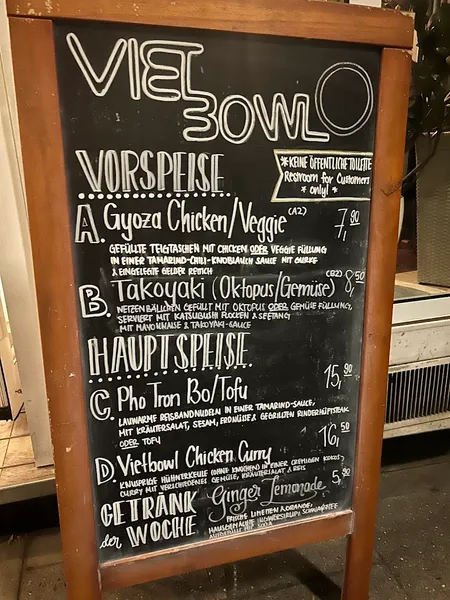 VIET
BOWL
*KEINE ÖFFENTLICHE TOILETTE
Restroom for Customers
* only! *
VORSPEISE
A. Gyoza Chicken/Veggie (A2) 7,90
GEFÜLLTE TEIGTASCHEN MIT CHICKEN ODER VEGGIE FÜLLUNG
IN EINER TAMARIND-CHILI-KNOBLAUCH SAUCE MIT GURKE
& EINGELEGTE GELBER RETTICH
B. Takoyaki (Oktopus/Gemüse) (B2) 8,50
WEIZENBÄLLCHEN GEFÜLLT MIT OKTOPUS ODER GEMÜSE FÜLLUNG,
SERVIERT MIT KATSUBUSHI FLOCKEN & SEETANG
MIT MAYONNAISE & TAKOYAKI-SAUCE
HAUPTSPEISE
C. Pho Tron Bo/Tofu 15,90
LAUWARME REISBANDNUDELN IN EINER TAMARIND-SAUCE,
MIT KRÄUTERSALAT, SESAM, ERDNÜSSE & GEGRILLTEN RINDERHÜFTSTEAK
ODER TOFU
D. Vietbowl Chicken Curry 16,50
KNUSPRIGE HÜHNERKEULE (OHNE KNOCHEN) IN EINER CREMIGEN KOKOS
CURRY MIT VERSCHIEDENES GEMÜSE, KRÄUTERSALAT & REIS
GETRÄNK
der WOCHE
Ginger Lemonade 5,90
FRISCHE LIMETTEN & ORANGE,
HAUSGEMACHTE INGWERSIRUP, SCHWARZTEE
AUFGEFÜLLT MIT SODA